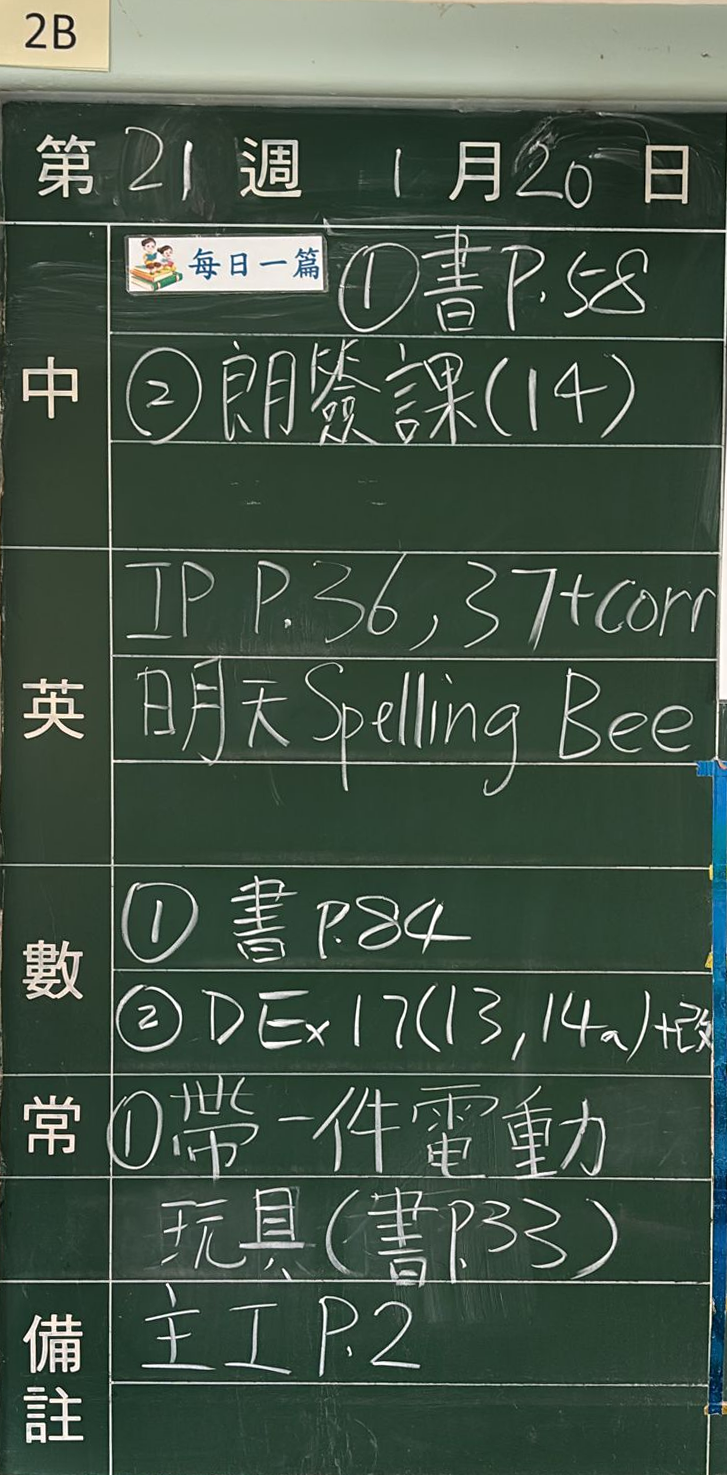 2B
第 21 週 1 月 20 日
中
每日一篇 ①書P.58
②朗簽課(14)
英
IP P.36,37+corr
明天Spelling Bee
數
① 書 P.84
② DEx 17(13,14a)+改
常
①帶一件電動
玩具(書P.33)
備註
主工 P.2